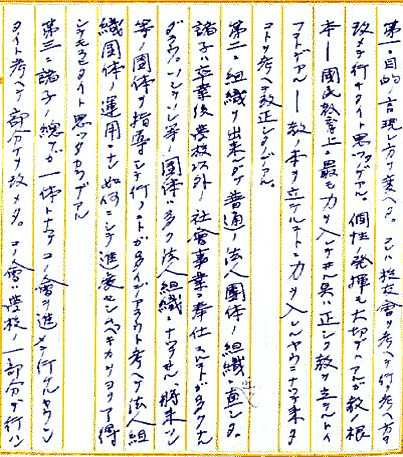 第一、目的ノ言現シ方ヲ変ヘタ。コレハ校友會ヲ考ヘテ行ク考ヘ方ヲ
改メテ行キタイト思ッタノデアル。個性ノ発揮モ大切デハアルガ教ノ根
本―國民教育上ニ最モ力ヲ入レナケレバ
ナラヌ点ハ正シク教ヲ立ツルトイ
フコトデアル―教ノ本ヲ立テルコトニ力ヲ入レルヤウニナッテ来タ
コトヲ考ヘテ改正シタノデアル。
第二、組織ヲ出来ルダケ普通ノ法人團体ノ組織ニ直シタ。
諸子ハ卒業後学校以外ノ社會事業ニ奉仕スルコトガ多クナ
ルダラウ。ソシテソレ等ノ團体ハ多ク法人組織ニナッテヰル。将来ソレ
等ノ團体ヲ指導シテ行クコトガ多イデアラウト考ヘテ法人組
織團体ノ運用ニナレ如何ニシテ進展センベキカヲヨク了得
シテモラヒタイト思ッタカラデアル
第三ニ諸子ノ總テガ一体トナッテコノ會ヲ進メテ行ケルヤウニシ
タイト考ヘテ部分ヲ改メタ。コノ會ハ学校ノ一部分デ行ハ